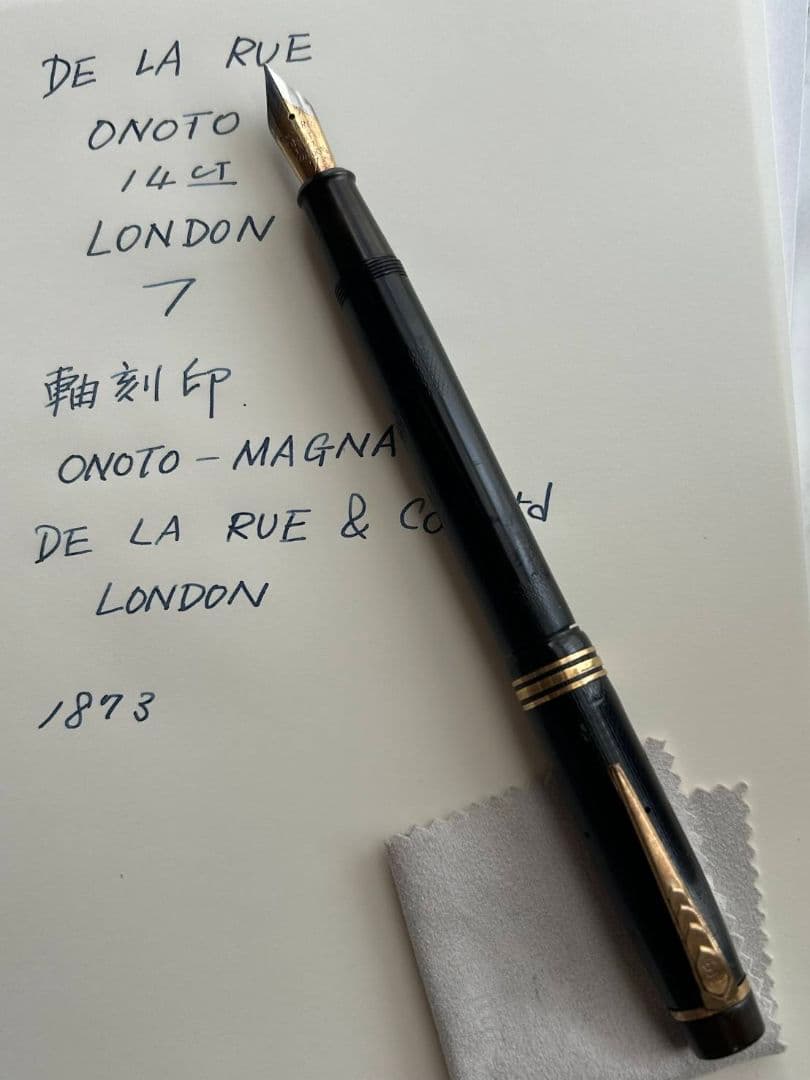 DE LA RUE
ONOTO
14 CT
LONDON
7
軸刻印.
ONOTO-MAGNA
DE LA RUE & Co td
LONDON
1873